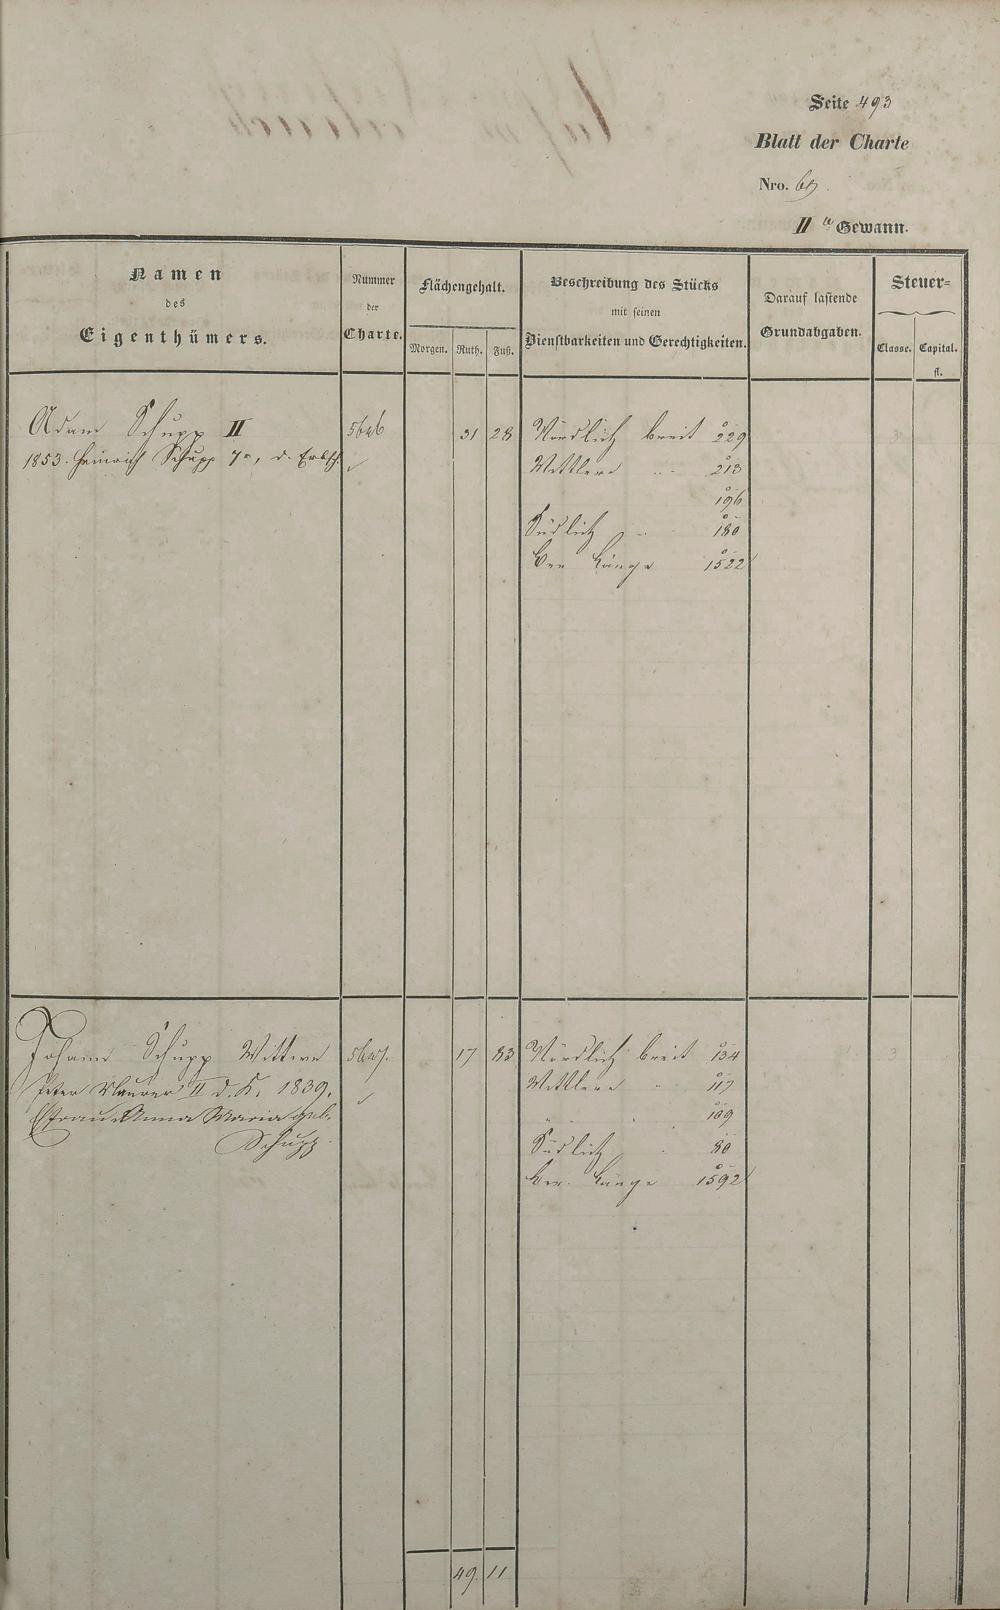 Seite 493
Blatt der Charte
Nro. 69.
II te Gewann.
Namen
des
Eigenthümers.
Nummer
der
Charte.
Flächengehalt.
Morgen. Ruth. Fuß.
Beschreibung des Stücks
mit seinen
Dienstbarkeiten und Gerechtigkeiten.
Darauf lastende
Grundabgaben.
Steuer-
Classe. Capital.
fl.
Adam Schupp II 5646 31 28 Nördlich breit 229
1853. Heinrich Schupp 7r, d. Erbsch. Mittlere " 213
196
Südlich " 180
Der Länge 1522
Johann Schupp Wittwe 5647. 17 83 Nördlich breit 134
Peter Maurer II d. K. 1839. Mittlere " 117
Ehefrau Anna Maria geb. " " 109
Schupp. Südlich " 80
Der Länge 1592
49. 11